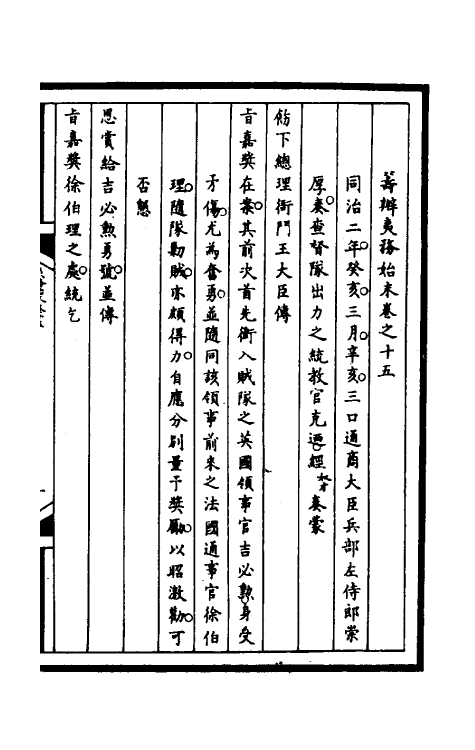 籌辦夷務始末卷之十五
同治二年癸亥三月辛亥三口通商大臣兵部左侍郎崇
厚奏查督隊出力之統教官克迺經奴才奏蒙
飭下總理衙門王大臣傳
旨嘉獎在案其前次首先衝入賊隊之英國領事官吉必勲身受
矛傷尤為奮勇並隨同該領事前來之法國通事官徐伯
理隨隊勦賊亦頗得力自應分別量予獎勵以昭激勸可
否懇
恩賞給吉必勲勇號並傳
旨嘉獎徐伯理之處統乞